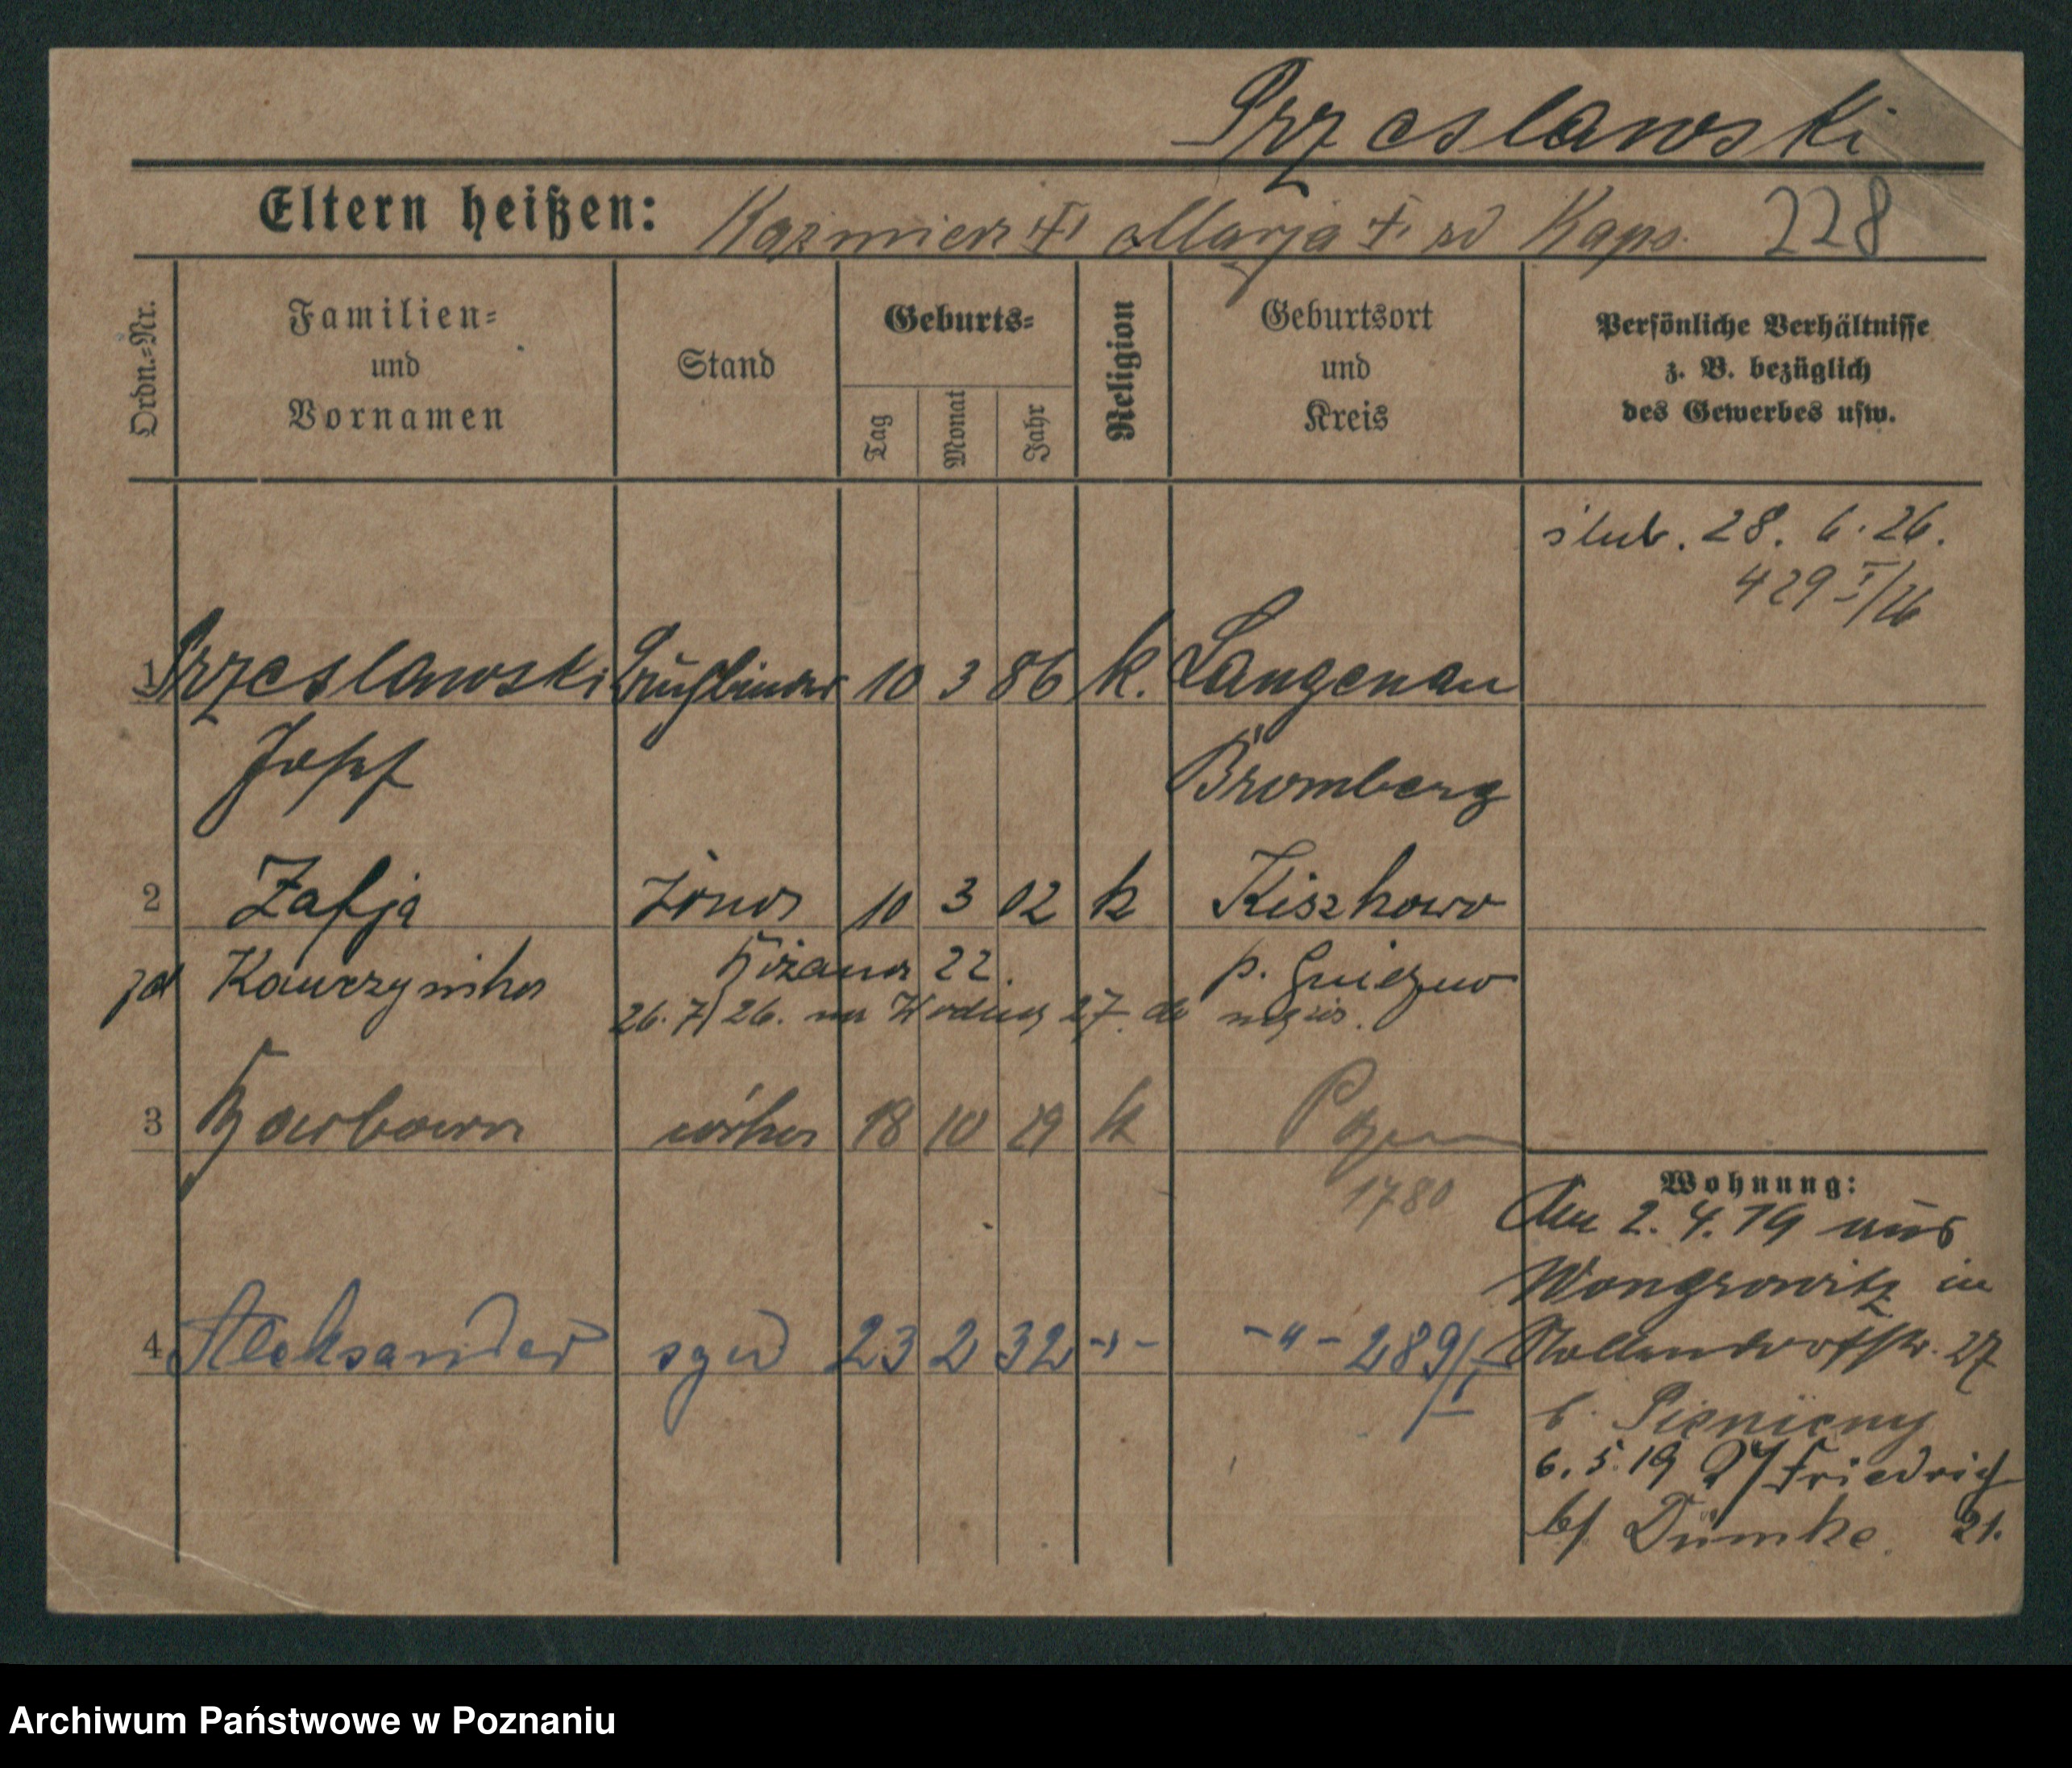 Przeslawski
Eltern heißen: Kazmierz † Marja † zd Kaps. 228
Ordn.=Nr.
Familien=
und
Vornamen
Stand
Geburts=
Tag
Monat
Jahr
Religion
Geburtsort
und
Kreis
Persönliche Verhältnisse
z. B. bezüglich
des Gewerbes usw.
ślub. 28. 6. 26.
429 I/26
1 Przeslawski 10 3 86 k. Langenau
Josef Bromberg
2 Zofja żona 10 3 02 k Kiszkowo
zd Kawczyńska 22. p. Gniezno
26. 7/26. na 27. do
3 Barbara córka 18 10 29 k Pozn
1780
4 Aleksander syn 23 2 32 -„- -„- 289/I
Wohnung:
Am 2. 4. 19 aus
Wongrowitz in
Nollendorfstr. 27
b. Pieniężny
6. 5. 19 Friedrich
b/ Dümke. 21.
Archiwum Państwowe w Poznaniu